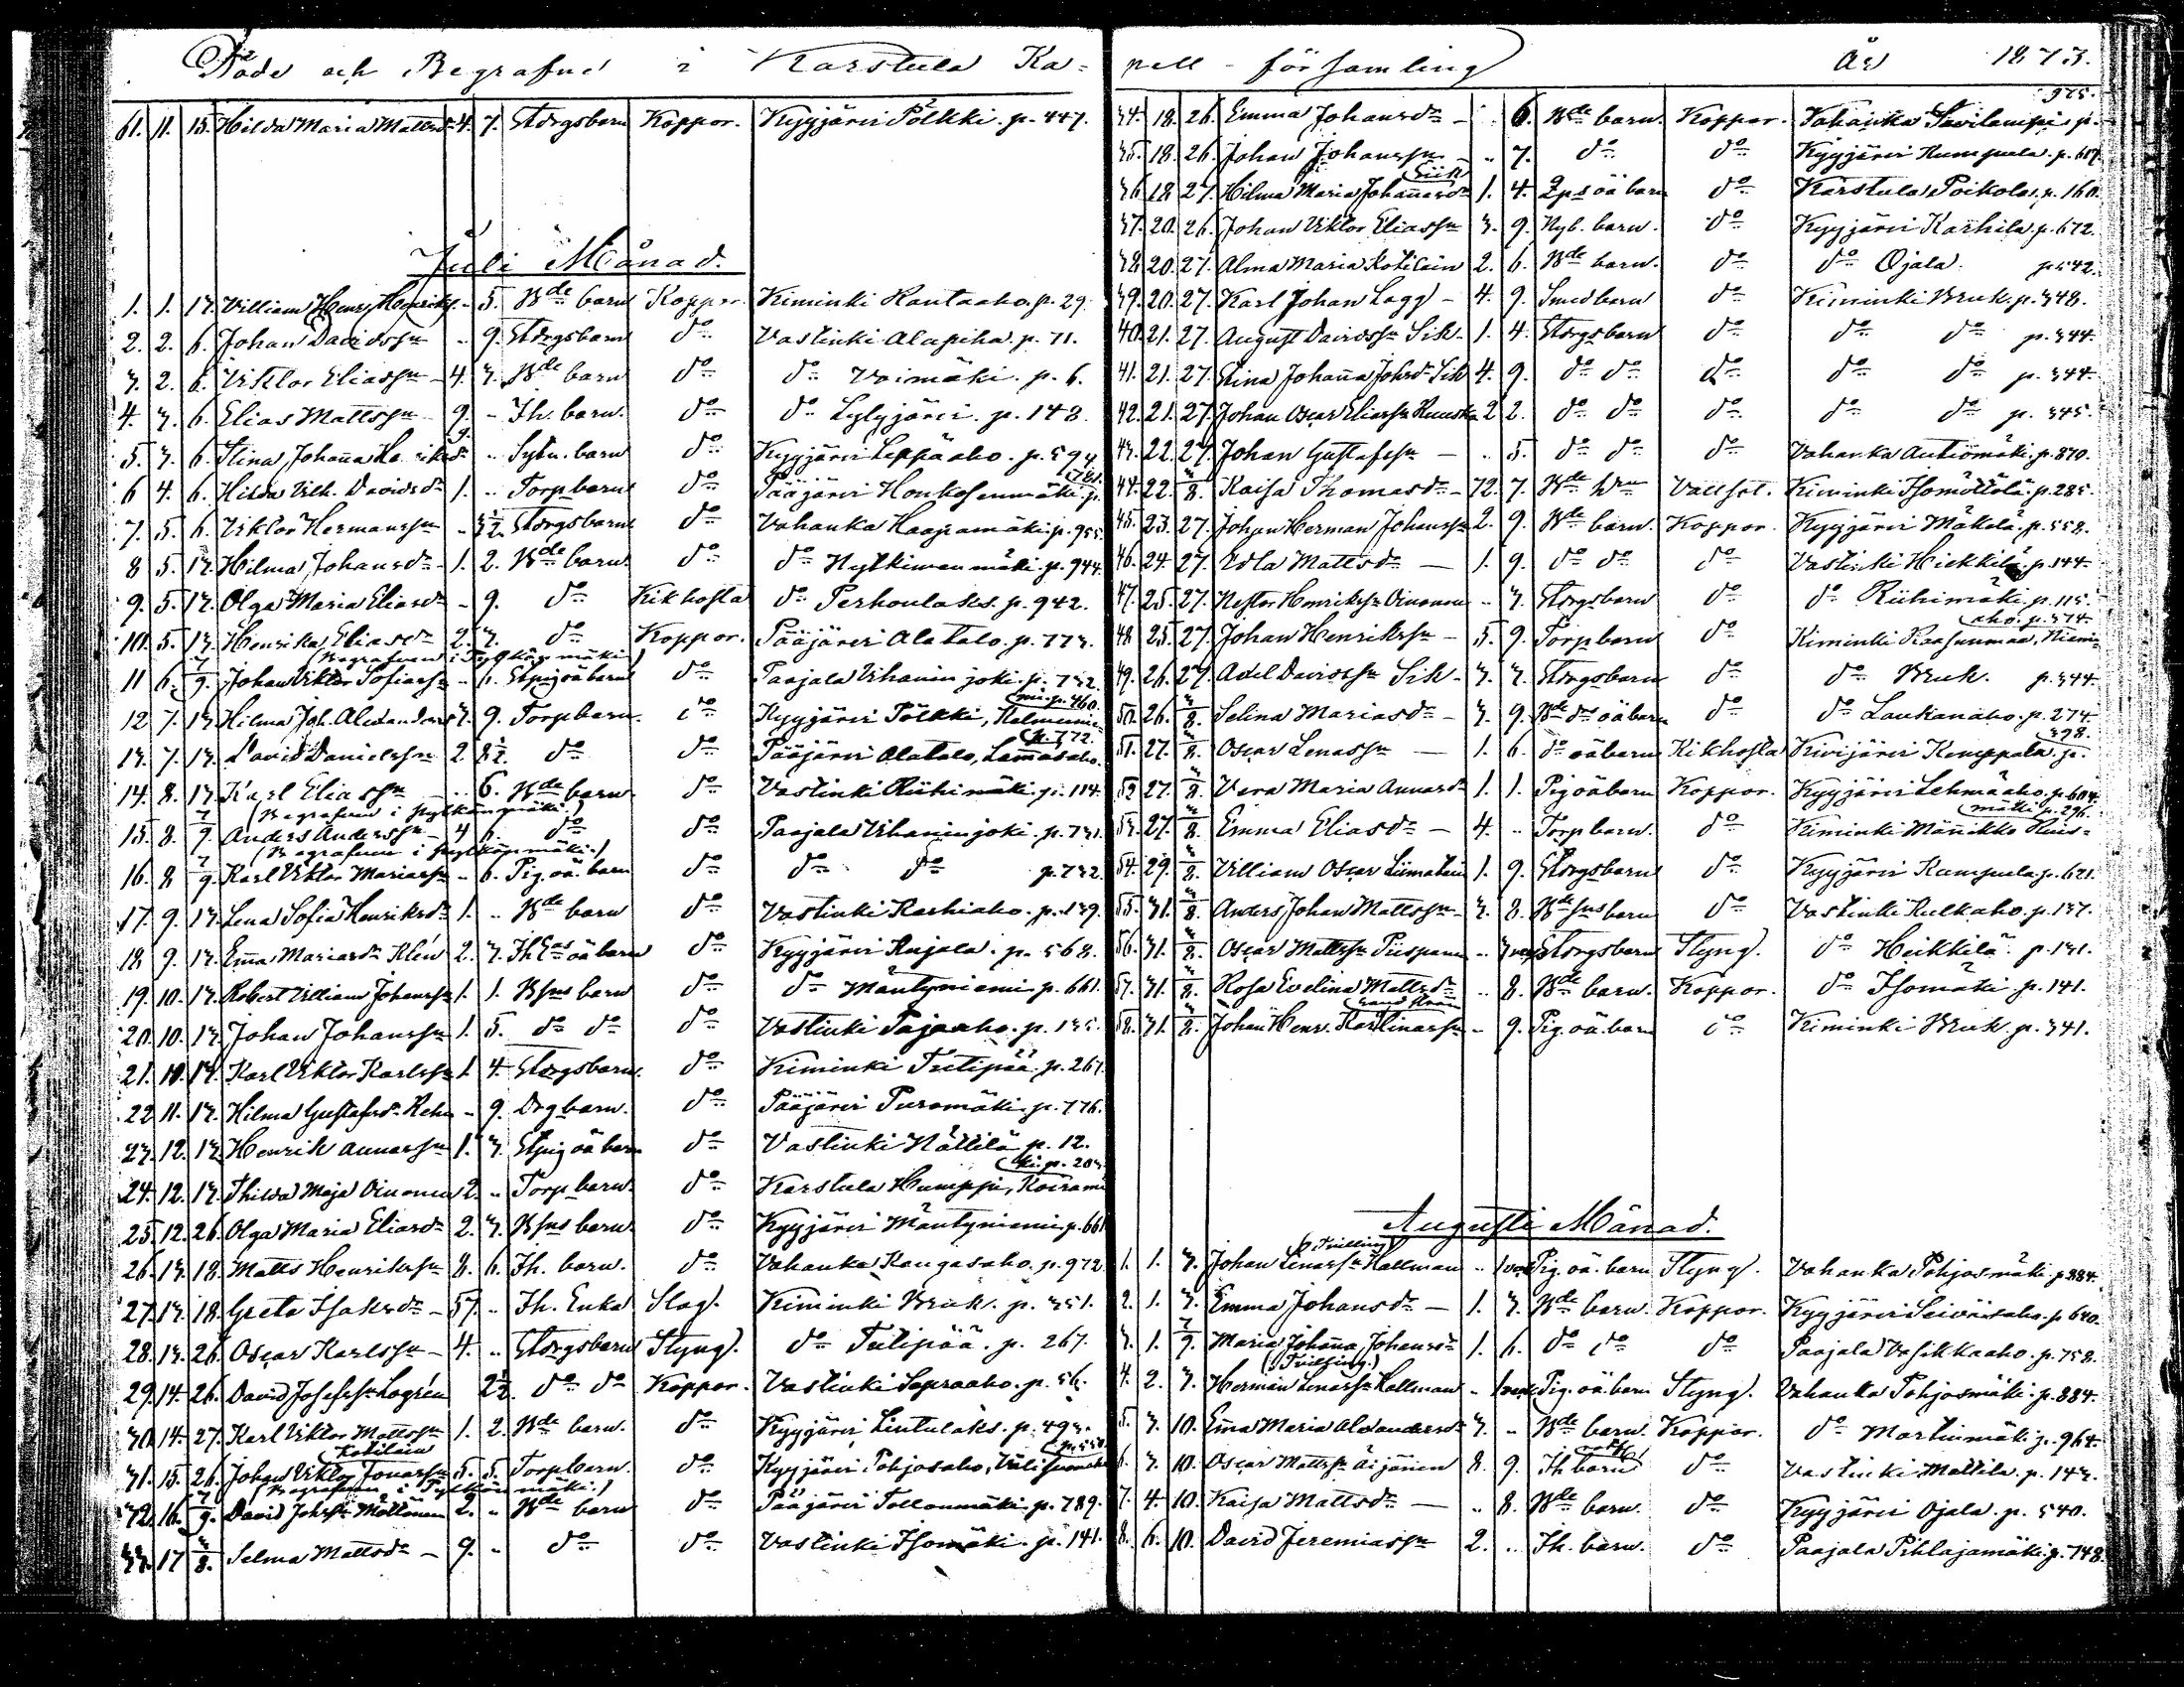 Döde och Begrafne i Karstula Kapell-församling År 1873.
61. 11. 15. Hilda Maria Mattsdr 4. 7. Storgsbarn Koppor. Kyyjärvi Pölkki. p. 447.
Juli Månad.
1. 1. 13. William Henr. 5. Bde barn Koppor. Kiminki Rantaaho. p. 29.
2. 2. 6. Johan Davidssn .. 9. Storgsbarn do Vastinki Alapiha. p. 71.
3. 2. 6. Viktor Eliassn 4. 3. Bde barn do do Voimäki. p. 6.
4. 3. 6. Elias Mattssn 9. - Ih. barn. do do Lylyjärvi. p. 148.
5. 3. 6. Stina Johanna 9. .. Sytn. barn do Kyyjärvi Leppäaho. p. 594
6 4. 6. Hilda Vilh. Davidsdr 1. .. Torpbarn do Pääjärvi Honkosenmäki. p. 781.
7. 5. 6. Viktor Hermanssn - 3½. Storgsbarn do Vahanka Haapamäki. p. 955.
8 5. 13. Hilma Johansdr 1. 2. Bde barn do do Nytkimenmäki. p. 944.
9. 5. 13. Olga Maria Eliasdr - 9. do Kikhosta do Perhoulaks. p. 942.
10. 5. 13. Henrika Eliasdr 2. 3. do Koppor. Pääjärvi Alatalo. p. 773.
(Begrafven i Pylkönmäki)
11 6. 7/9. Johan Viktor Sofiassn .. 6. Stpigoäbarn do Paajala Vihaninjoki. p. 732.
12 7. 13. Hilma Joh. Alexandersdr 3. 9. Torpbarn. do Kyyjärvi Pölkki, Kalmuniemi. p. 460.
13. 7. 13. David Danielssn 2. 8½. do do Pääjärvi Alatalo, Lamasaho. p. 772.
14. 8. 13. Karl Eliassn .. 6. Bde barn do Vastinki Riihimäki. p. 114.
(Begrafven i Pylkönmäki.)
15. 8. 7/9. Anders Anderssn 4 6. do do Paajala Vihaninjoki. p. 731.
(Begrafven i Pylkönmäki.)
16. 8 7/9. Karl Viktor Mariassn .. 6. Pig. oä. barn do do do p. 732.
17. 9. 13. Lena Sofia Henriksdr 1. .. Bde barn do Vastinki Karhiaho. p. 139.
18 9. 13. Emma Mariasdr Klén 2. 3. oä barn do Kyyjärvi Kujala. p. 568.
19. 10. 13. Robert William Johanssn 1. 1. Bsns barn do do Mäntyniemi p. 661.
20. 10. 13. Johan Johanssn 1. 5. do do do Vastinki Pajaaho. p. 135.
21. 10. 14. Karl Viktor Karlssn 1. 4. Storgsbarn. do Kiminki Tulipää. p. 267.
22 11. 13. Hilma Gustafsdr Rehn - 9. Drgbarn. do Pääjärvi Puromäki. p. 776.
23. 12. 13. Henrik Annassn 1. 3. Stpig oä barn do Vastinki Nättilä p. 12.
24. 12. 13. Thilda Maja Oinonen 2. .. Torpbarn. do Karstula Humppi, Koiramäki. p. 203.
25. 12. 26. Olga Maria Eliasdr 2. 3. Bsns barn. do Kyyjärvi Mäntyniemi p. 661
26. 13. 18. Matts Henrikssn 8. 6. Ih. barn. do Vahanka Kangasaho. p. 972.
27. 13. 18. Greta Isaksdr - 57. .. Ih. Enka Slag. Kiminki Bruk. p. 351.
28. 13. 26. Oscar Karlssn - 4. .. Storgsbarn Styng. do Tulipää. p. 267.
29. 14. 26. David Josefssn Logrén 2½. do do Koppor. Vastinki Sopraaho. p. 56.
30. 14. 27. Karl Viktor Mattssn 1. 2. Bde barn. do Kyyjärvi Lintulaks. p. 493.
31. 15. 26. Johan Viktor Jonassn Kotilain 5. 5. Torpbarn. do Kyyjärvi Pohjosaho, p. 550.
(Begrafven i Pylkönmäki.)
32. 16. 7/9. David Johssn Möttönen 2. .. Bde barn do Pääjärvi Tollonmäki. p. 789.
33. 17 3/8. Selma Mattsdr - 9. - do do Vastinki Isomäki. p. 141.
År 1873.
34. 18. 26. Emma Johansdr - .. 6. Bde barn. Koppor. Vahanka Savilampi, p. 975.
35. 18. 26. Johan Johanssn - .. 7. do do Kyyjärvi Rumpula. p. 617.
36 18 27. Hilma Maria Johannasdr Siik 1. 4. oä barn do Karstula Poikola. p. 160.
37. 20. 26. Johan Viktor Eliassn 3. 9. Nyb. barn. do Kyyjärvi Karhila. p. 672.
38 20. 27. Alma Maria Kotilain 2. 6. Bde barn. do do Ojala. p. 542.
39. 20. 27. Karl Johan Lagg - 4. 9. Smedbarn do Kiminki Bruk. p. 348.
40. 21. 27. August Davidssn Sik - 1. 4. Storgsbarn do do do p. 344.
41. 21. 27. Stina Johanna Johsdr Sik 4. 9. do do do do do p. 344.
42. 21. 27. Johan Oscar Eliassn Ruuska 2 2. do do do do do p. 345.
43. 22. 27. Johan Gustafssn - .. 5. do do do Vahanka Autiomäki. p. 870.
44. 22. 3/8. Kaisa Thomasdr - 72. 7. Bde Vattsot. Kiminki Isomöttölä. p. 285.
45. 23. 27. Johan Herman Johanssn 2. 9. Bde barn. Koppor. Kyyjärvi Mäkelä. p. 558.
46. 24. 27. Edla Mattsdr - 1. 9. do do do Vastinki Hiekkilä. p. 144.
47. 25. 27. Nestor Henrikssn Oinonen .. 3. Storgsbarn do do Riihimäki. p. 115.
48 25. 27. Johan Henrikssn - 5. 9. Torpbarn do Kiminki Kaasunmaa, Niemiaho. p. 374.
49. 26. 27. Axel Davidssn Sik - 3. 3. Storgsbarn do do Bruk. p. 344.
50. 26. 3/8. Selina Mariasdr - 3. 9. oäbarn do do Laukanaho. p. 274.
51. 27. 3/8. Oscar Lenassn - 1. 6. do oäbarn Kikhosta Kivijärvi Kemppala. p. 398.
52 27. 3/8. Vera Maria Annasdr 1. 1. Pigoäbarn Koppor. Kyyjärvi Lehmäaho. p. 604.
53. 27. 3/8. Emma Eliasdr - 4. .. Torpbarn. do Kiminki Männikkö p. 296.
54. 29. 3/8. William Oscar Liimatain 1. 9. Storgsbarn do Kyyjärvi Rumpula. p. 621.
55. 31. 3/8. Anders Johan Mattssn 3. 8. barn do Vastinki Kulkaho. p. 137.
56. 31. 3/8. Oscar Mattssn Piispanen .. 3 vec Storgsbarn Styng. do Heikkilä. p. 131.
57. 31. 3/8. Rosa Evelina Mattsdr .. 8. Bde barn. Koppor. do Isomäki p. 141.
58. 31. 3/8. Johan Henr. Karlinassn Sandström - 9. Pig. oä. barn do Kiminki Bruk. p. 341.
Augusti Månad.
1. 1. 3. Johan Lenassn Kallman (Tvilling) .. 1 vec Pig. oä. barn Styng. Vahanka Pohjosmäki p. 884.
2. 1. 3. Emma Johansdr - 1. 3. Bde barn. Koppor. Kyyjärvi Leiväisaho. p. 640.
3. 1. 7/9. Maria Johanna Johansdr 1. 6. do do do Paajala Vasikkaaho. p. 758.
4. 2. 3. Herman Lenassn Kallman (Tvilling.) - 1 vec Pig. oä. barn Styng. Vahanka Pohjosmäki. p. 884.
5. 3. 10. Emma Maria Alexandersdr 3. .. Bde barn. Koppor. do Martinmäki p. 964.
6. 3. 10. Oscar Mattssn Äijänen 8. 9. Ih barn do Vastinki Mattila. p. 143.
7. 4. 10. Kaisa Mattsdr - .. 8. Bde barn. do Kyyjärvi Ojala. p. 540.
8. 6. 10. David Jeremiassn 2. .. Ih. barn. do Paajala Pihlajamäki. p. 748.